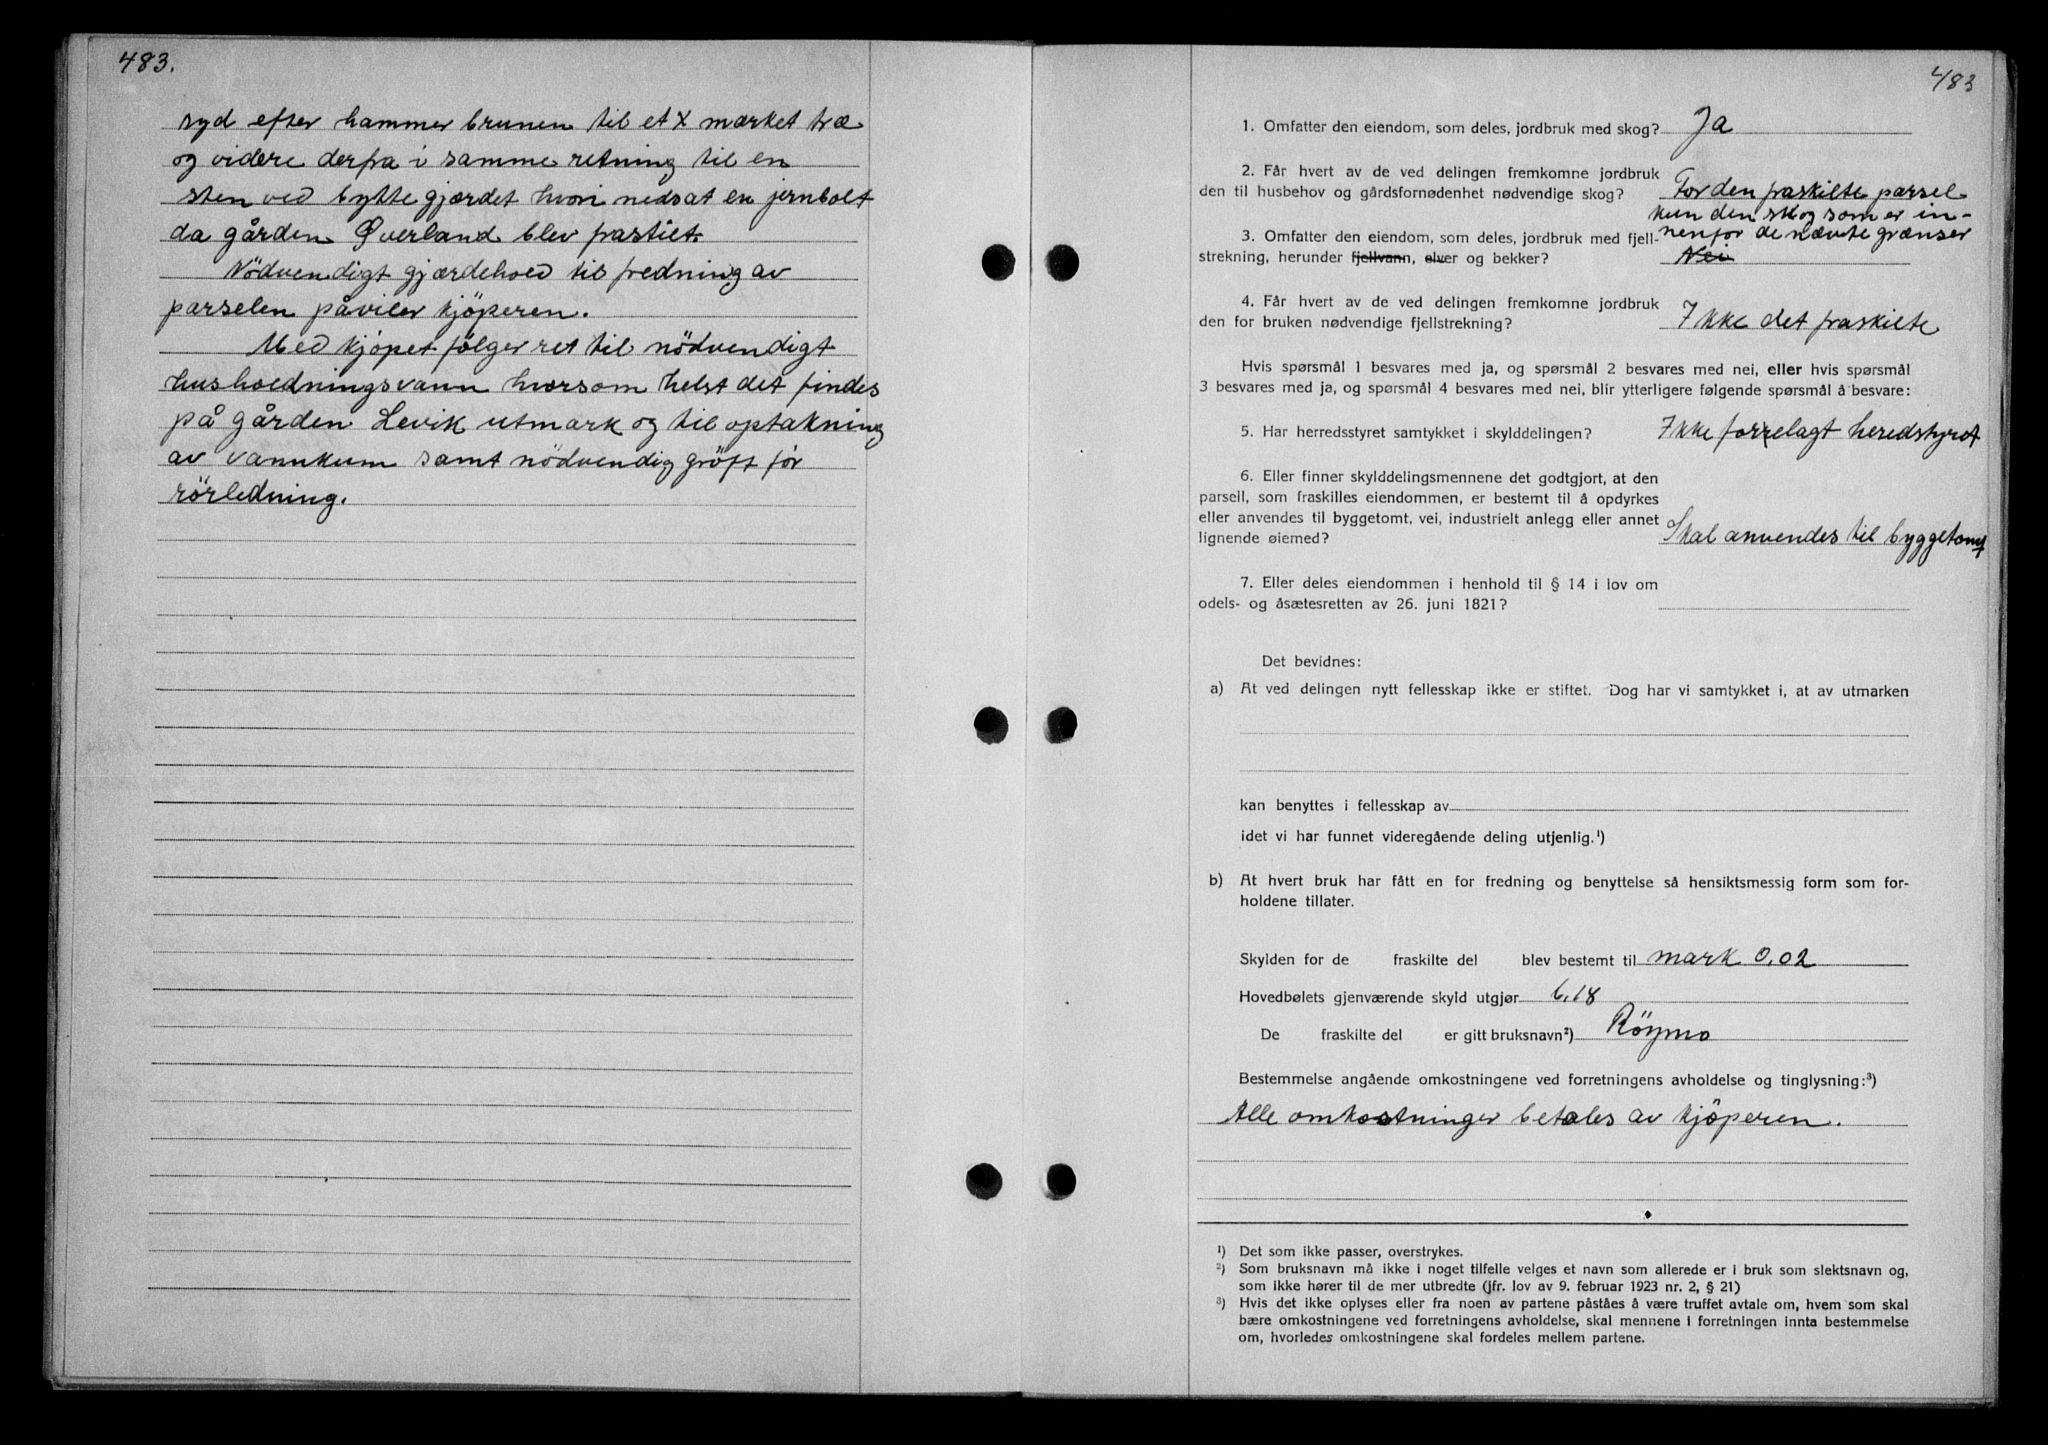 483.
syd efter hammer brunen til et X mærket træ
og videre derfra i samme retning til en
sten ved bytte gjærdet hvori nedsat en jernbolt
da gården Øverland blev fraskilt.
Nödvendigt gjærdehold til fredning av
parselen påviler kjöperen.
Med kjöpet fölger ret til nödvendigt
husholdningsvann hvorsom helst det findes
på gården Levik utmark og til optakning
av vannkum samt nödvendig gröft for
rörledning.
483
1. Omfatter den eiendom, som deles, jordbruk med skog? Ja
2. Får hvert av de ved delingen fremkomne jordbruk
den til husbehov og gårdsfornødenhet nødvendige skog? For den fraskilte parsel
kun den skog som er in-
nenfor de nævnte grænser
3. Omfatter den eiendom, som deles, jordbruk med fjell-
strekning, herunder fjellvann, elver og bekker? Nei
4. Får hvert av de ved delingen fremkomne jordbruk
den for bruken nødvendige fjellstrekning? Ikke det fraskilte
Hvis spørsmål 1 besvares med ja, og spørsmål 2 besvares med nei, eller hvis spørsmål
3 besvares med ja, og spørsmål 4 besvares med nei, blir ytterligere følgende spørsmål å besvare:
5. Har herredsstyret samtykket i skylddelingen? Ikke forrelagt heredstyret
6. Eller finner skylddelingsmennene det godtgjort, at den
parsell, som fraskilles eiendommen, er bestemt til å opdyrkes
eller anvendes til byggetomt, vei, industrielt anlegg eller annet
lignende øiemed? Skal anvendes til byggetomt
7. Eller deles eiendommen i henhold til § 14 i lov om
odels- og åsætesretten av 26. juni 1821?
Det bevidnes:
a) At ved delingen nytt fellesskap ikke er stiftet. Dog har vi samtykket i, at av utmarken
kan benyttes i fellesskap av
idet vi har funnet videregående deling utjenlig.¹)
b) At hvert bruk har fått en for fredning og benyttelse så hensiktsmessig form som for-
holdene tillater.
Skylden for de fraskilte del blev bestemt til mark 0,02
Hovedbølets gjenværende skyld utgjør 6,18
De fraskilte del er gitt bruksnavn²) Röymo
Bestemmelse angående omkostningene ved forretningens avholdelse og tinglysning:³)
Alle omkostninger betales av kjöperen.
¹) Det som ikke passer, overstrykes.
²) Som bruksnavn må ikke i noget tilfelle velges et navn som allerede er i bruk som slektsnavn og,
som ikke hører til de mer utbredte (jfr. lov av 9. februar 1923 nr. 2, § 21)
³) Hvis det ikke oplyses eller fra noen av partene påståes å være truffet avtale om, hvem som skal
bære omkostningene ved forretningens avholdelse, skal mennene i forretningen innta bestemmelse
om, hvorledes omkostningene skal fordeles mellem partene.